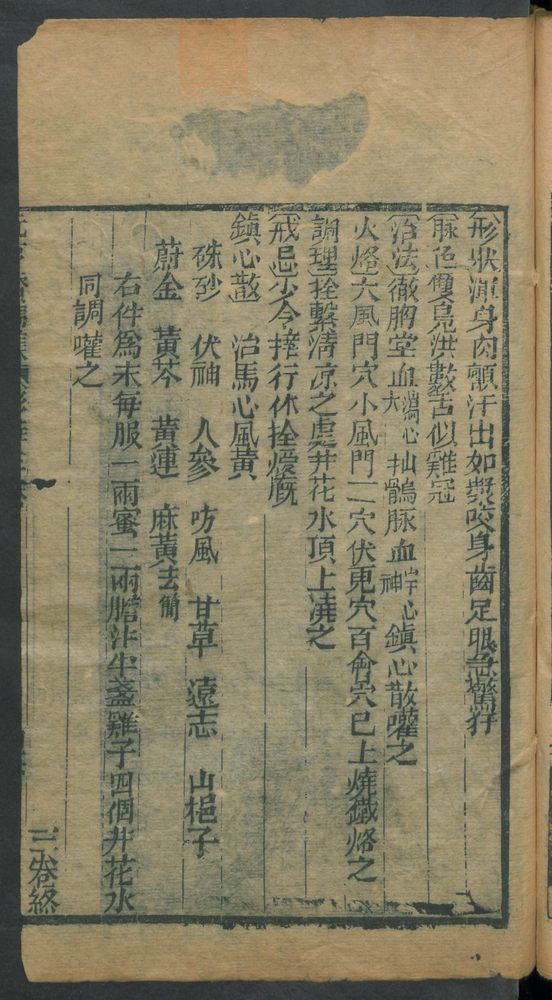 形状渾身肉顫汗出如漿咬身齧足眼急驚狂
脉色雙鳧洪數舌似雞冠
治法徹胸堂血瀉心大抽鶻脉血寧心神鎮心散嚾之
火烙大風門穴小風門二穴伏兎穴百會穴已上燒鐵烙之
調理拴繫清凉之處井花水頂上澆之
戒忌少令撁行休拴煖厩
鎮心散　治馬心風黄
硃砂　伏神　人參　防風　甘草　遠志　山梔子
蔚金　黄芩　黄連　麻黄去節
右件為末每服一兩蜜一兩膽汁半盞雞子四個井花水
同調嚾之
三卷終